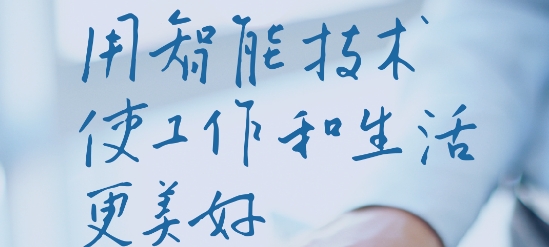 用智能技术
使工作和生活
更美好